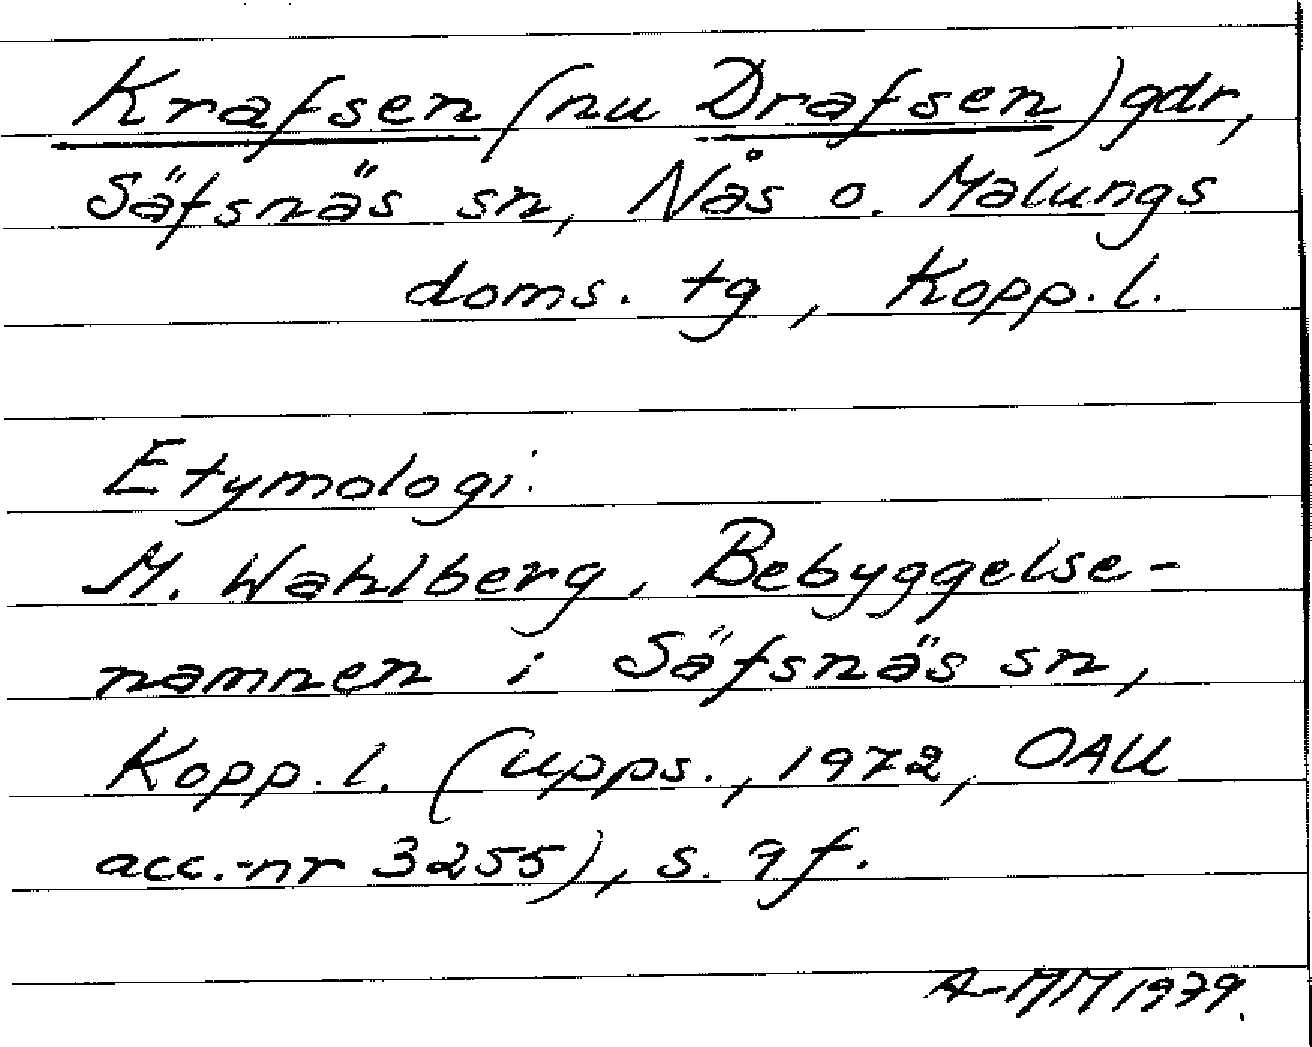 Krafsen (nu Drafsen) gdr,
Säfsnäs sn, Nås o. Malungs
doms. tg, Kopp. l.
Etymologi:
M. Wahlberg, Bebyggelse-
namnen i Säfsnäs sn,
Kopp. l. (Upps., 1972, OAU
acc.-nr 3255), s. 9 f.
A-MM 1979.